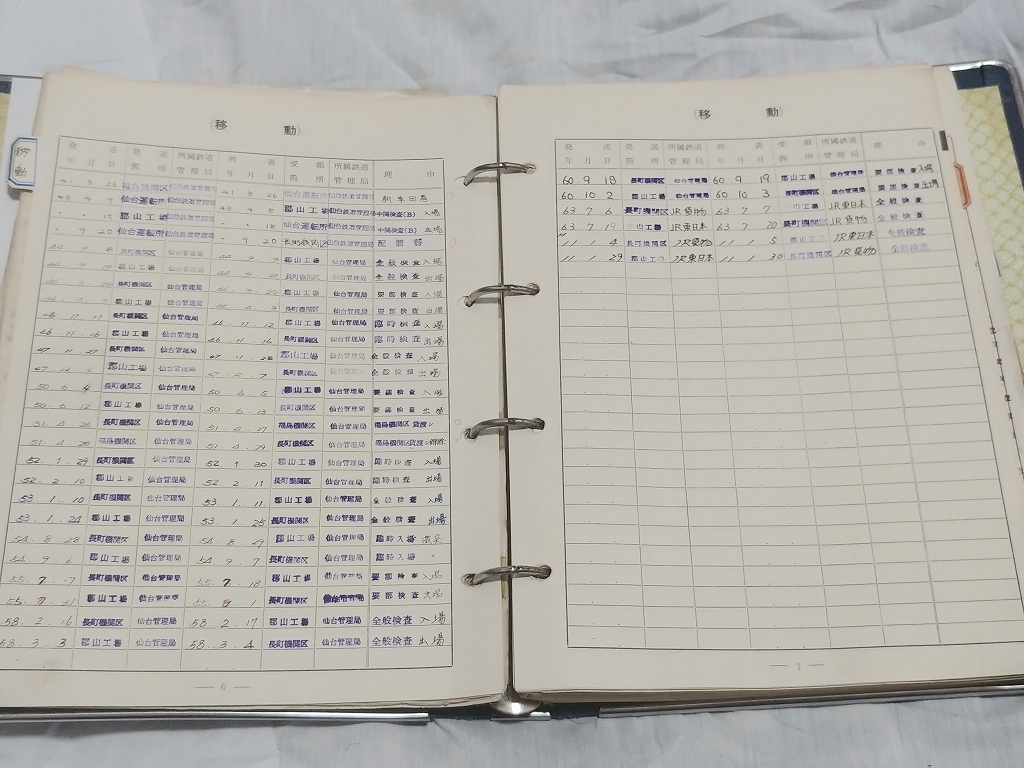 移動
(移 動)
発 送 年 月 日 発 送 箇 所 所属鉄道管理局 到 着 年 月 日 受 領 箇 所 所属鉄道管理局 理 由
41. 8. 26 福島機関区 仙台鉄道管理局 41. 8. 26 仙台運転所 仙台鉄道管理局 新車回着
仙台運転所 仙台鉄道管理局 郡山工場 仙台鉄道管理局 中間検査(B) 入場
〃 〃 郡山工場 仙台鉄道管理局 〃 〃 18 仙台運転所 仙台鉄道管理局 中間検査(B) 出場
〃 9 20 仙台運転所 仙台鉄道管理局 〃 9 20 長町機関区 仙台鉄道管理局 配置替
長町機関区 仙台管理局 郡山工場 仙台管理局 全般検査 入場
郡山工場 仙台管理局 長町機関区 仙台管理局 全般検査 出場
長町機関区 仙台管理局 郡山工場 仙台管理局 要部検査 入場
郡山工場 仙台管理局 長町機関区 仙台管理局 要部検査 出場
46. 11. 11 長町機関区 仙台管理局 46. 11. 12 郡山工場 仙台管理局 臨時検査 入場
46. 11. 16 郡山工場 仙台管理局 46. 11. 16 長町機関区 仙台管理局 臨時検査 出場
47. 11. 27 長町機関区 仙台管理局 47. 11. 28 郡山工場 仙台管理局 全般検査 入場
郡山工場 仙台管理局 長町機関区 仙台管理局 全般検査 出場
50. 6. 4 長町機関区 仙台管理局 50. 6. 5 郡山工場 仙台管理局 要部検査 入場
50. 6. 12 郡山工場 仙台管理局 50. 6. 13 長町機関区 仙台管理局 要部検査 出場
51. 4. 26 長町機関区 仙台管理局 51. 4. 27 福島機関区 仙台管理局 福島機関区 貸渡シ
51. 4. 28 福島機関区 仙台管理局 51. 4. 29 長町機関区 仙台管理局 福島機関区貸渡シ解除
52. 1. 29 長町機関区 仙台管理局 52. 1. 30 郡山工場 仙台管理局 臨時検査 入場
52. 2. 10 郡山工場 仙台管理局 52. 2. 11 長町機関区 仙台管理局 臨時検査 出場
53. 1. 10 長町機関区 仙台管理局 53. 1. 11 郡山工場 仙台管理局 全般検査 入場
53. 1. 24 郡山工場 仙台管理局 53. 1. 25 長町機関区 仙台管理局 全般検査 出場
54. 8. 28 長町機関区 仙台管理局 54. 8. 29 郡山工場 仙台管理局 臨時入場
54. 9. 6 郡山工場 仙台管理局 54. 9. 7 長町機関区 仙台管理局 臨時入場 〃
55. 7. 17 長町機関区 仙台管理局 55. 7. 18 郡山工場 仙台管理局 要部検査 入場
55. 7. 31 郡山工場 仙台管理局 55. 8. 1 長町機関区 仙台管理局 要部検査 出場
58. 2. 16 長町機関区 仙台管理局 58. 2. 17 郡山工場 仙台管理局 全般検査 入場
58. 3. 3 郡山工場 仙台管理局 58. 3. 4 長町機関区 仙台管理局 全般検査 出場
— 6 —
(移 動)
発 送 年 月 日 発 送 箇 所 所属鉄道管理局 到 着 年 月 日 受 領 箇 所 所属鉄道管理局 理 由
60 9 18 長町機関区 仙台管理局 60 9 19 郡山工場 仙台管理局 要部検査 入場
60 10 2 郡山工場 仙台管理局 60 10 3 長町機関区 仙台管理局 要部検査 出場
63 7 6 長町機関区 JR貨物 63 7 7 山工場 JR東日本 全般検査
63 7 19 山工場 JR東日本 63 7 20 長町機関区 JR貨物 全般検査
11 1 4 長町機関区 JR貨物 11 1 5 郡山工場 JR東日本 全般検査
11 1 29 郡山工場 JR東日本 11 1 30 長町機関区 JR貨物 全般検査
— 7 —